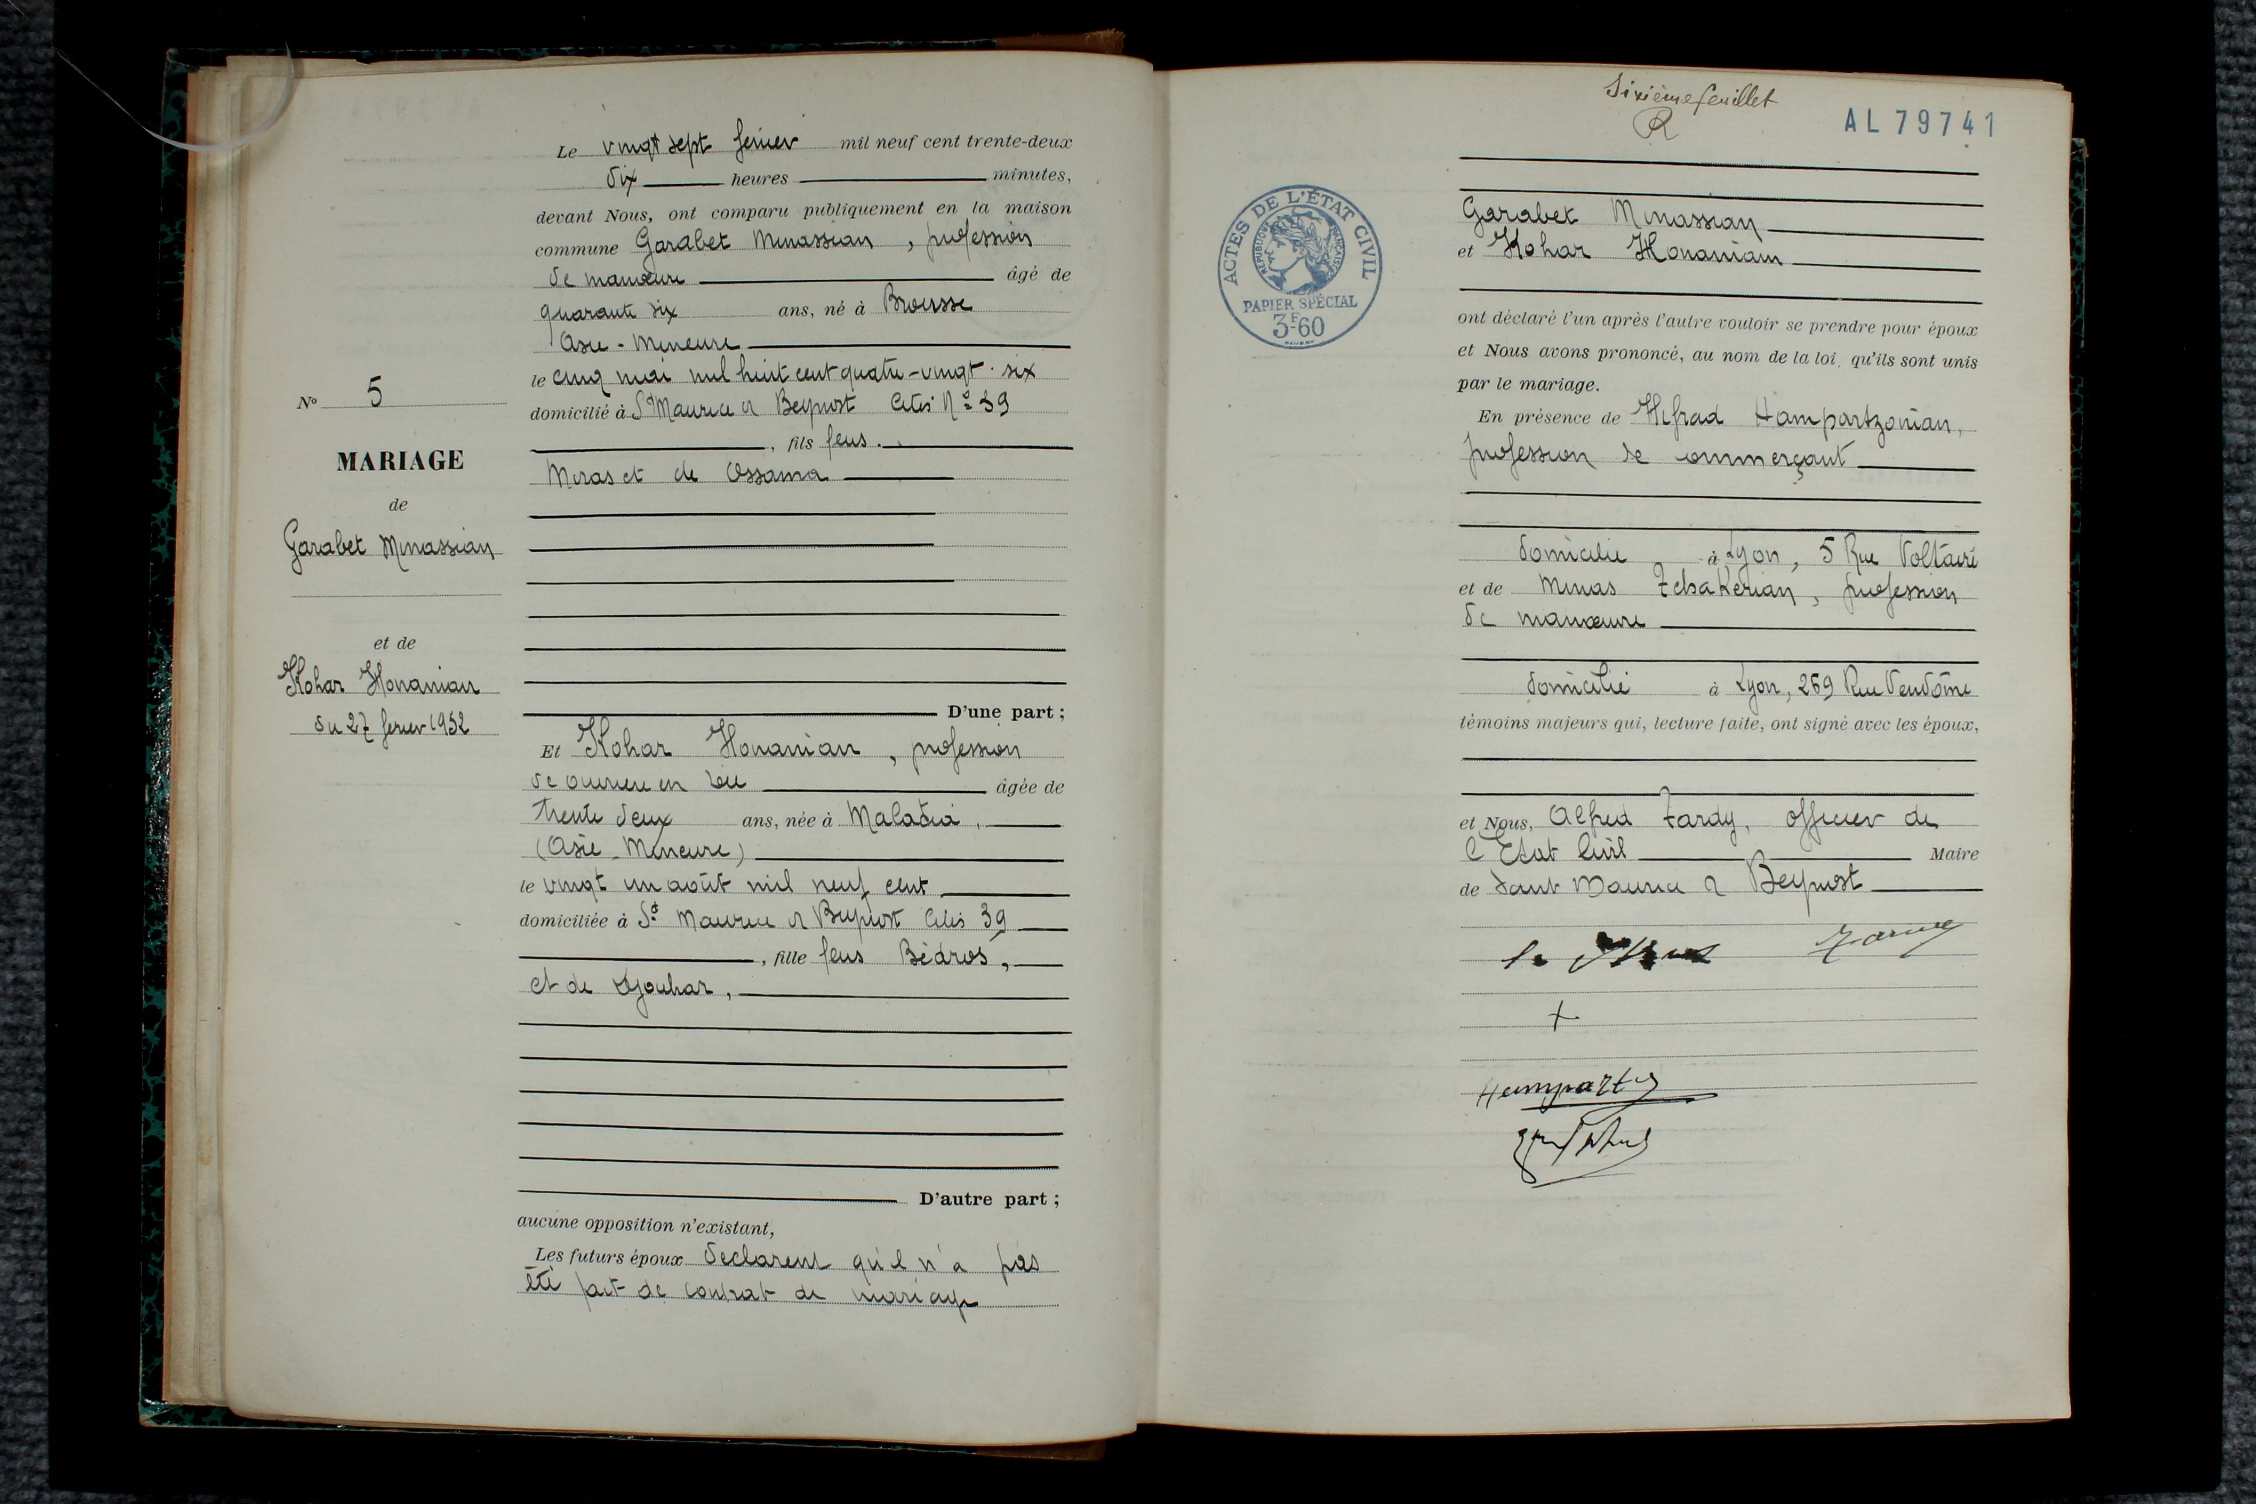 Le vingt sept février mil neuf cent trente-deux
dix heures minutes,
devant Nous, ont comparu publiquement en la maison
commune Garabet Minassian, profession
de manœuvre âgé de
quarante six ans, né à Brousse
Asie-Mineure
le cinq mai mil huit cent quatre-vingt-six
domicilié à St Maurice de Beynost Cités No 39
, fils feus
Miras et de Ossama
No 5
MARIAGE
de
Garabet Minassian
et de
Kohar Honanian
du 27 fevrier 1932
D'une part;
Et Kohar Honanian, profession
de ouvrière en soie âgée de
trente deux ans, née à Malatia,
(Asie-Mineure)
le vingt un août mil neuf cent
domiciliée à St Maurice de Beynost Cités 39
, fille feus Bédros,
et de Djouhar,
D'autre part;
aucune opposition n'existant,
Les futurs époux declarent qu'il n'a pas
été fait de contrat de mariage
Sixième feuillet
R
AL 79741
ACTES DE L'ÉTAT CIVIL
RÉPUBLIQUE FRANÇAISE
PAPIER SPÉCIAL
3F60
Garabet Minassian
et Kohar Honanian
ont déclaré l'un après l'autre vouloir se prendre pour époux
et Nous avons prononcé, au nom de la loi, qu'ils sont unis
par le mariage.
En présence de Hampartzonian,
profession de commerçant
domicilié à Lyon, 5 Rue Voltaire
et de Minas Tchakerian, profession
de manœuvre
domicilié à Lyon, 269 Rue Vendôme
témoins majeurs qui, lecture faite, ont signé avec les époux,
et Nous, Alfred Tardy, officier de
l'Etat Civil Maire
de Saint Maurice de Beynost
+